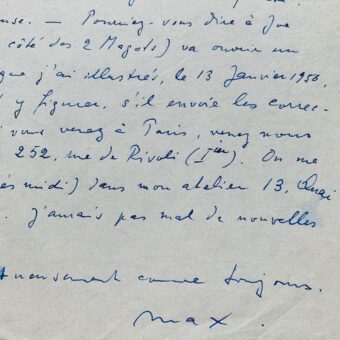 use. — Pourriez-vous dire à Jue
côté des 2 Magots) va ouvrir un
que j'ai illustrés, le 13 Janvier 1950,
y figurer, s'il envoie les corres-
vous venez à Paris, venez nous
252, rue de Rivoli (Ier). On me
ès midi) dans mon atelier 13, Quai
. J'amais pas mal de nouvelles
tueusement comme toujours.
max.